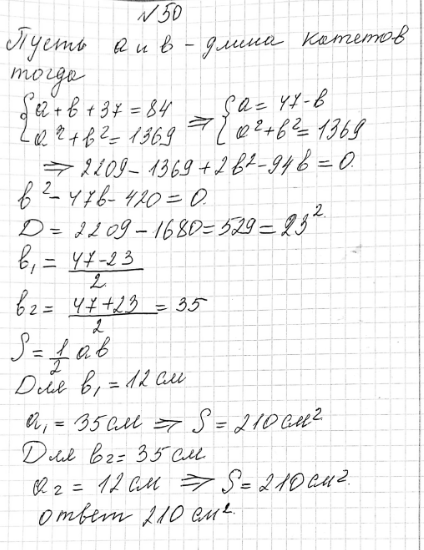 №50
Пусть a и в - длина катетов
тогда
{a + в + 37 = 84 ⇒ {a = 47 - в
{a² + в² = 1369 {a² + в² = 1369
⇒ 2209 - 1369 + 2в² - 94в = 0
в² - 47в - 420 = 0.
D = 2209 - 1680 = 529 = 23²
в₁ = 47-23/2
в₂ = 47+23/2 = 35
S = 1/2 aв
Для в₁ = 12 см
a₁ = 35 см ⇒ S = 210 см²
Для в₂ = 35 см
a₂ = 12 см ⇒ S = 210 см².
ответ 210 см².